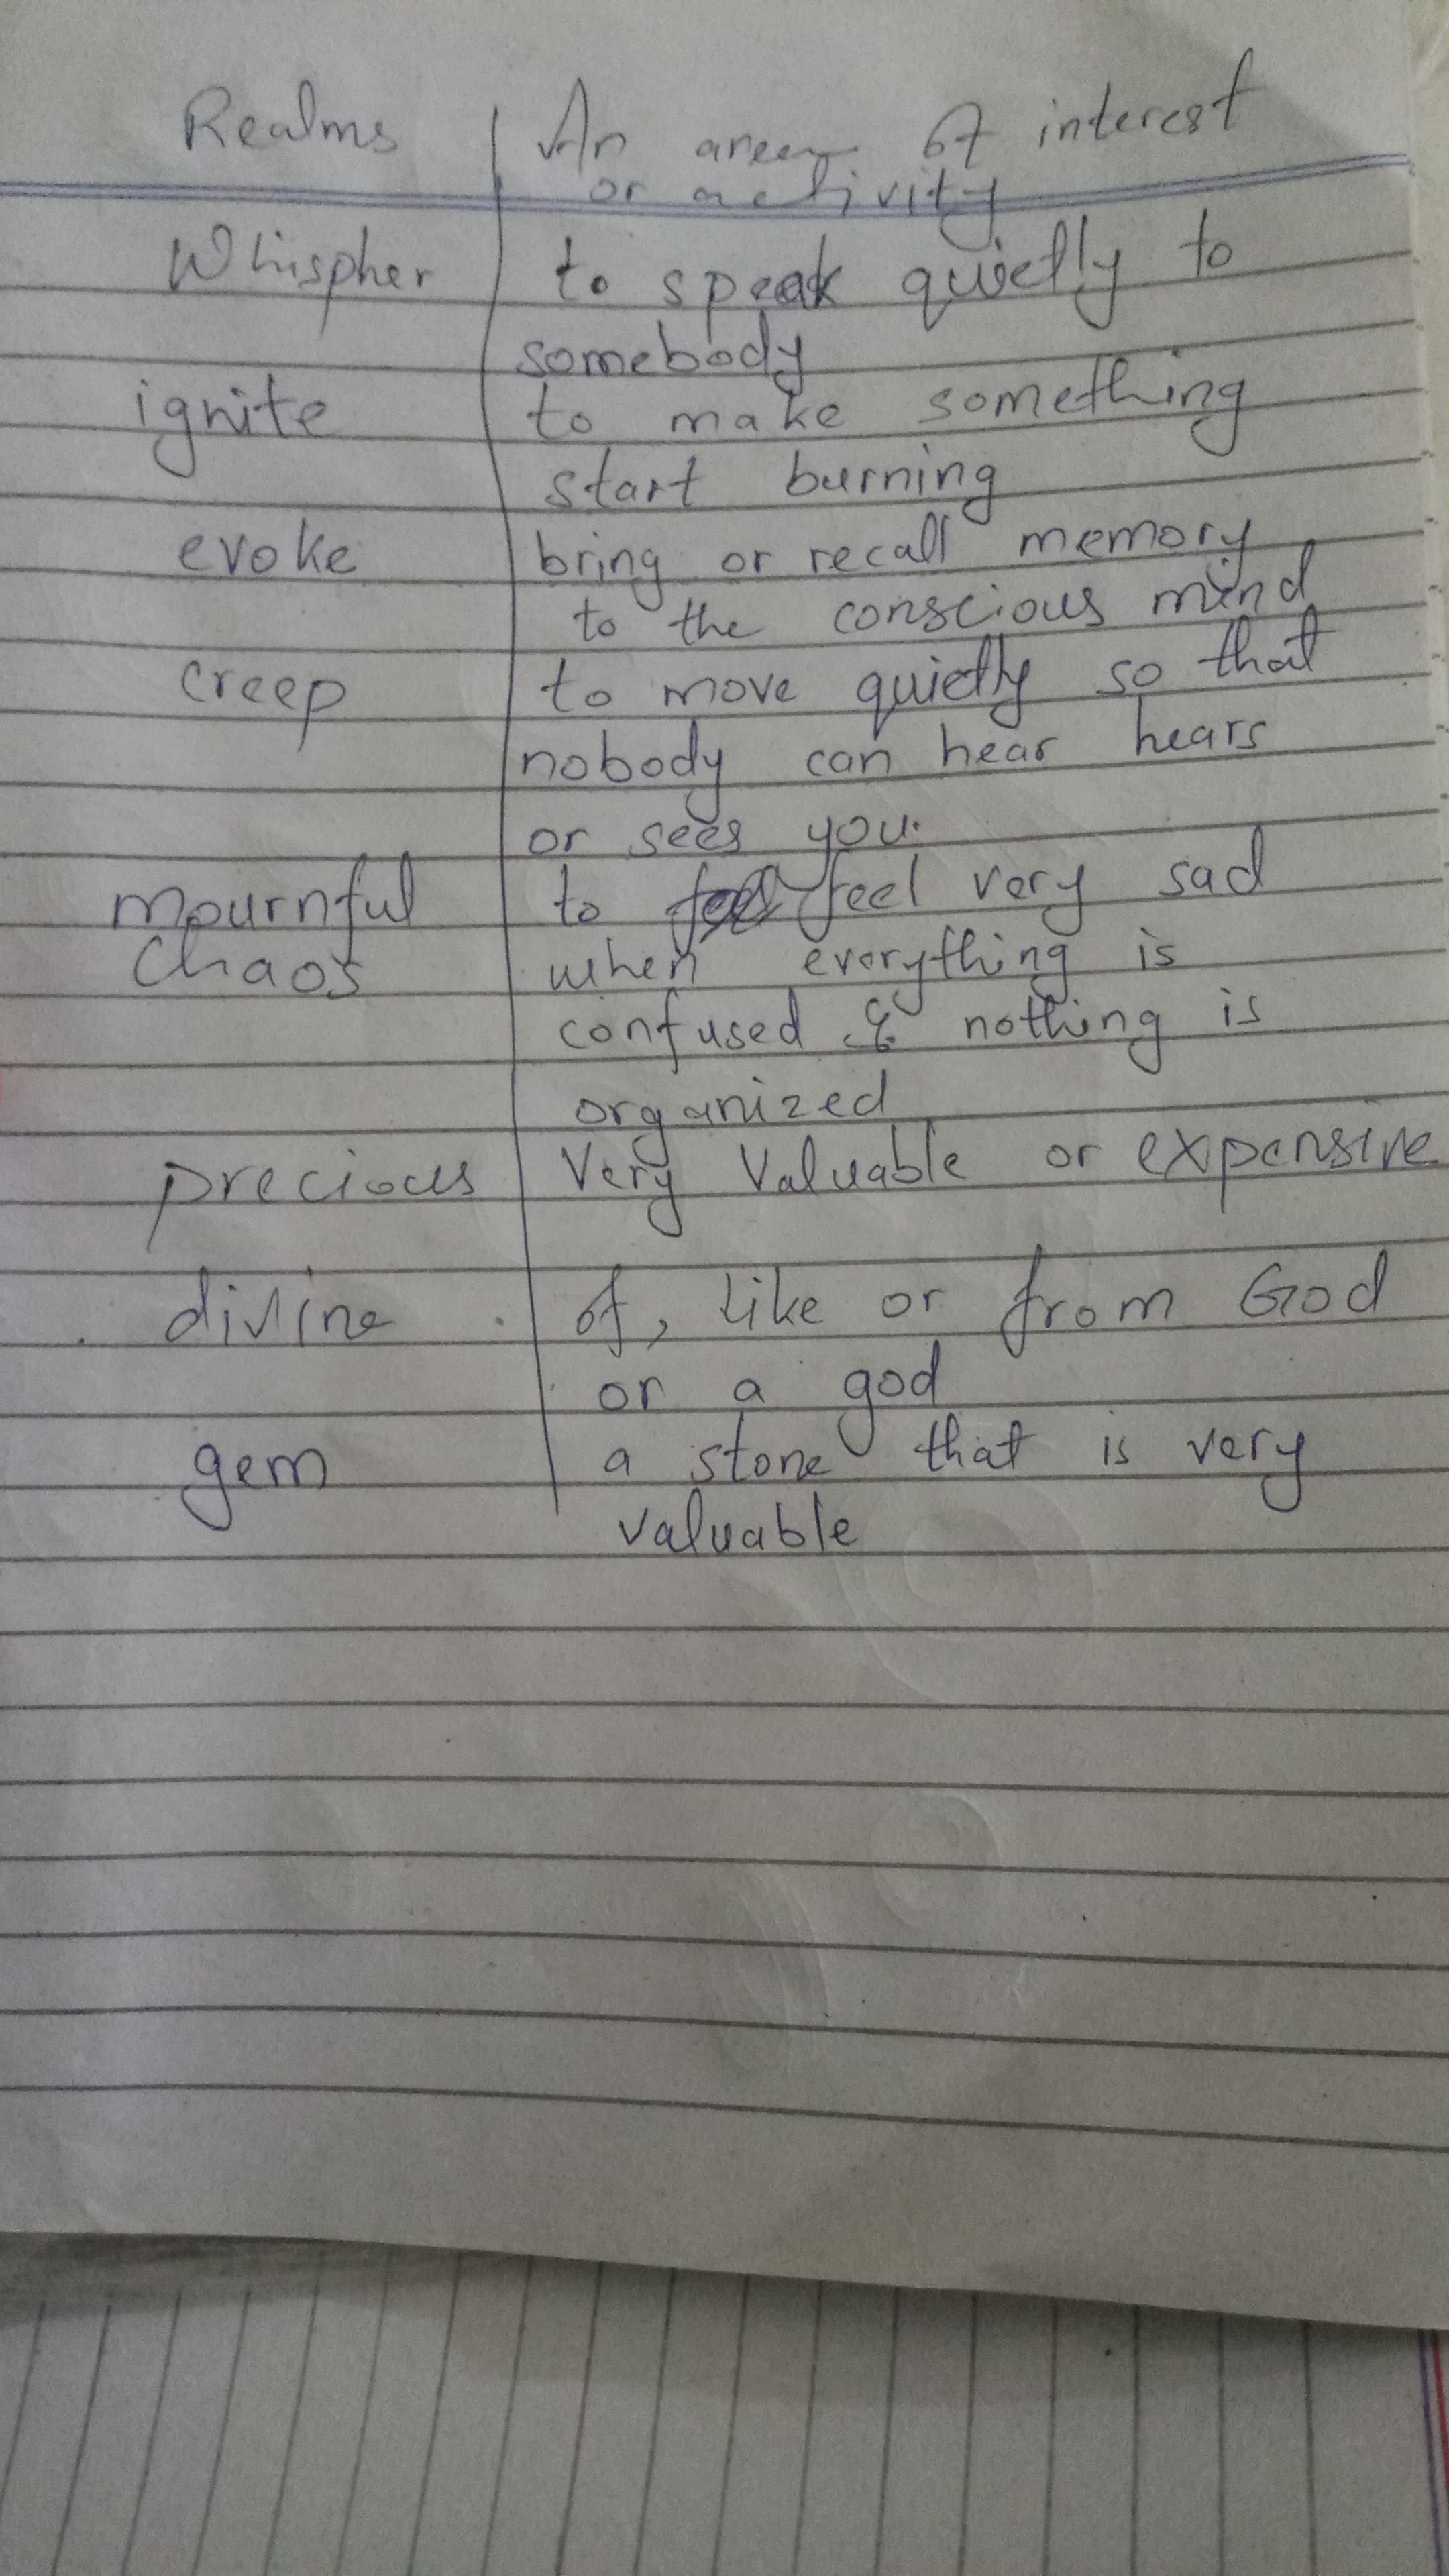 Realms An area of interest
or activity
Whispher to speak quietly to
somebody
ignite to make something
start burning
evoke bring or recall memory
to the conscious mind
creep to move quietly so that
nobody can hear hears
or sees you.
mournful to feel very sad
Chaos when everything is
confused & nothing is
organized
precious Very Valuable or expensive
divine of, like or from God
or a god
gem a stone that is very
valuable